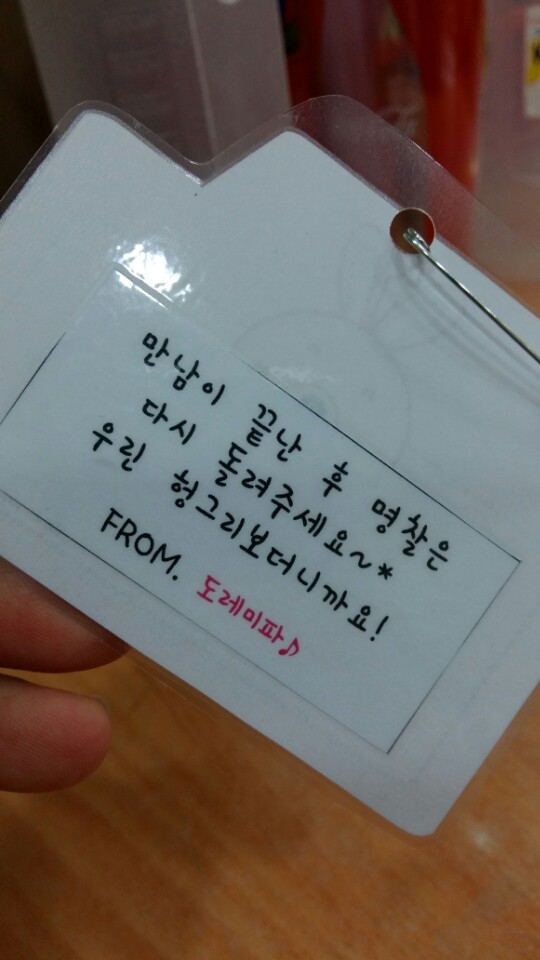 만남이 끝난 후 명찰은
다시 돌려주세요~*
우린 헝그리보더니까요!
FROM. 도레미파♪